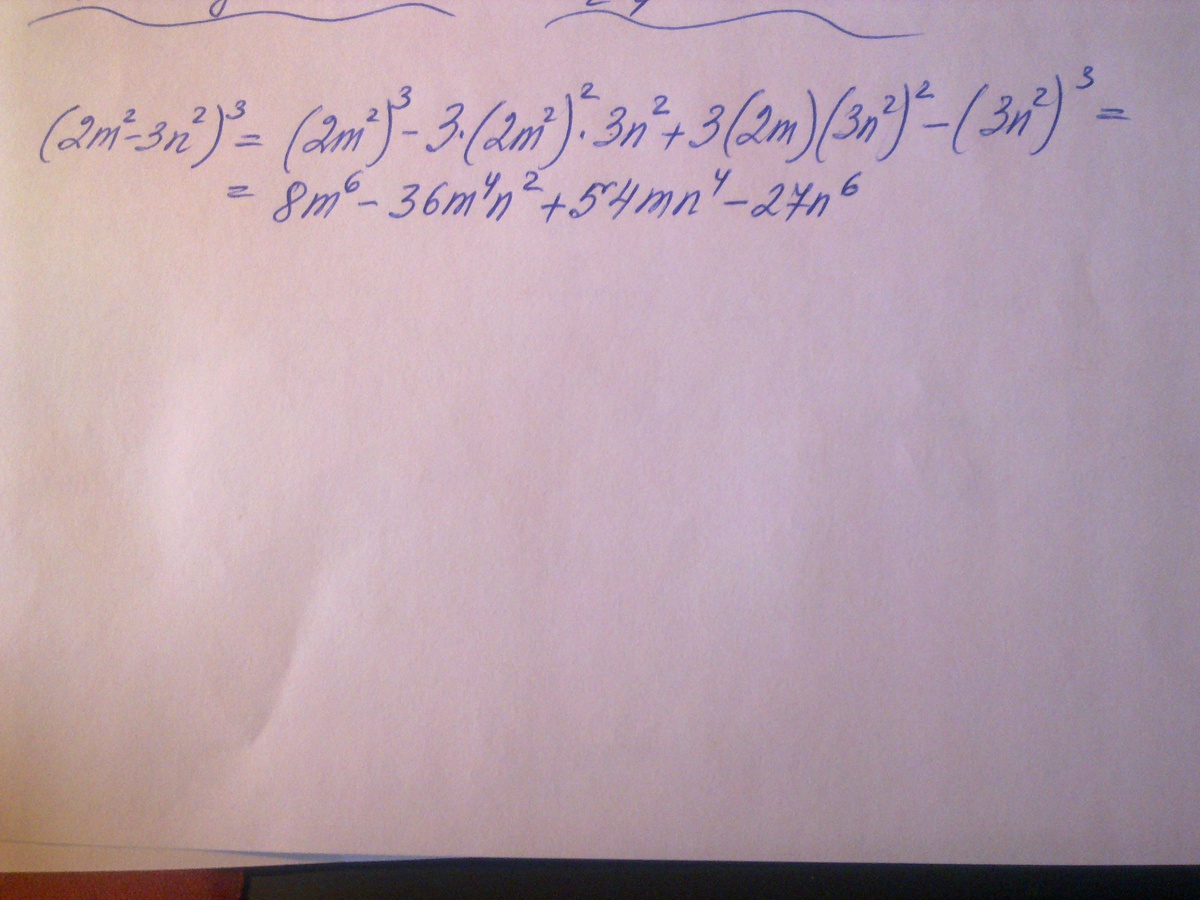 (2m²-3n²)³= (2m²)³- 3·(2m²)²· 3n²+3(2m)(3n²)²-(3n²)³=
= 8m⁶- 36m⁴n²+54mn⁴-27n⁶